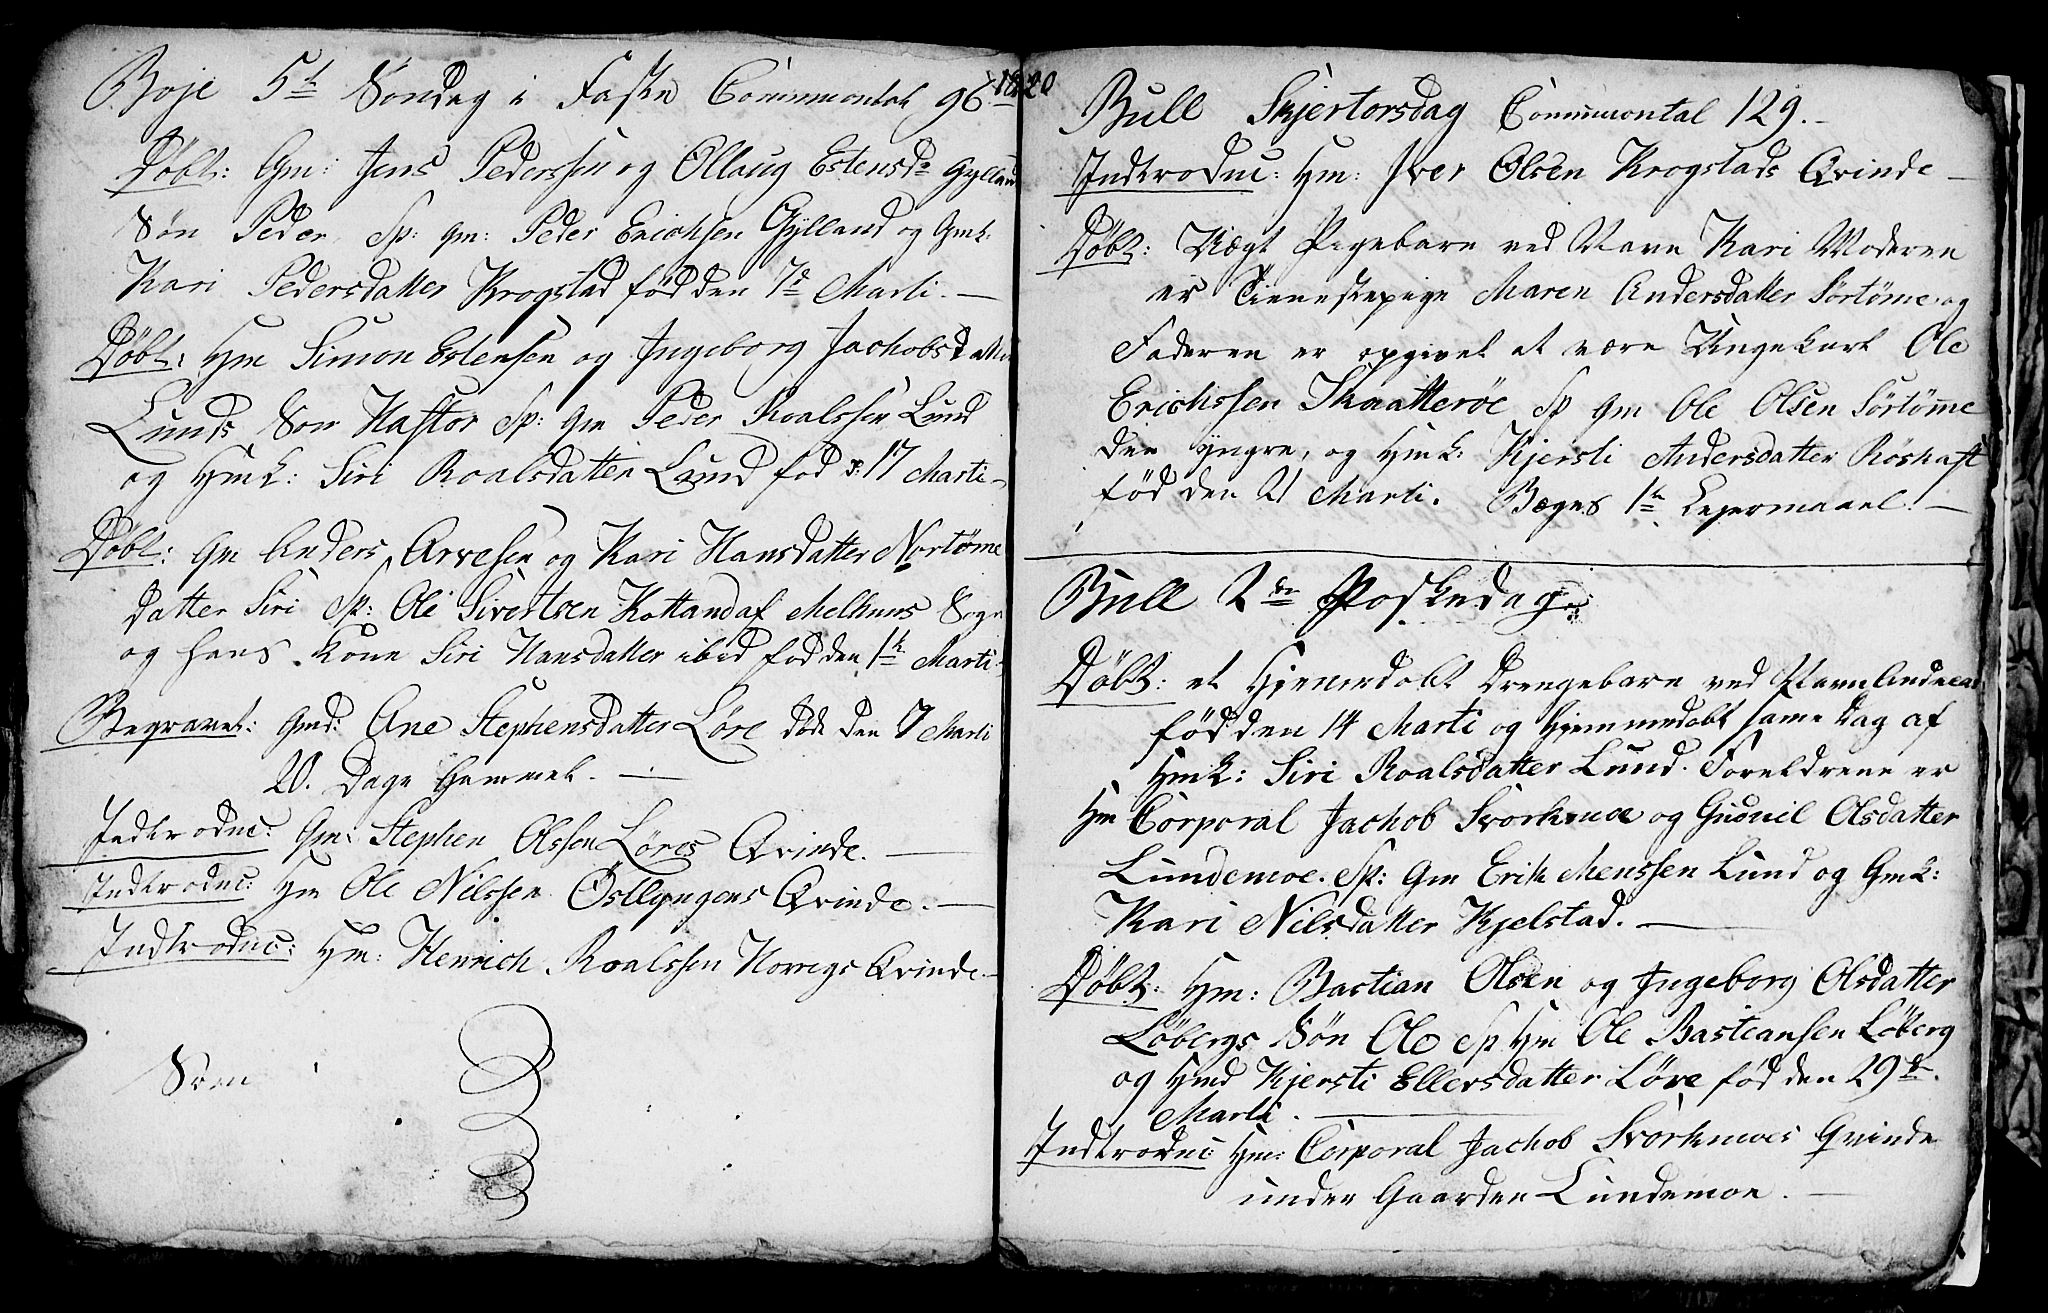 1820
Boje 5te Søndag i Faste Communontal 96
Døbt: Gm: Jens Pederssen og Ollaug Estensdr Gylland
Søn Peder. Sp: gm: Peder Erichsen Gylland og Gmk:
Kari Pedersdatter Krogstad fød den 7de Marti. —
Døbt: Hm Simon Estensen og Ingeborg Jachobsdatter
Lunds Søn Haftor Sp: Gm Peder Roalssen Lund
og Hmk: Siri Roalsdatter Lund fød d: 17 Marti —
Døbt: Gm Anders Arvesen og Kari Hansdatter Nortømme
datter Siri Sp: Ole Sivertsen Kottand af Melhuus Sogn
og hans Kone Siri Hansdatter ibid fød den 1te Marti.
Begravet: Gmd: Ane Stephensdatter Løre døde den 7 Marti
20. Dage Gammel. —
Indtroduc: Gm: Stephen Olssen Løres Qvinde. —
Indtroduc: Hm Ole Nilssen Östlyngens Qvinde. —
Indtroduc: Hm: Henrich Roalssen Horregs Qvinde —
Søm
Bull Skjertorsdag Communontal 129. —
Indtroduc: Hm: Iver Olsen Krogstads Qvinde —
Døbt: Uægt Pigebarn ved Navn Kari Moderen
er Tienestepige Maren Andersdatter Sørtøme og
Faderen er opgivet at være Ungekarl Ole
Erichssen Skaatterøe Sp Gm Ole Olsen Sørtømme
den yngre, og Hmk: Kjersti Andersdatter Röshaft
fød den 21 Marti. Begges 1te Lejermaael. —
Bull 2den Poskedag.
Døbt: et Hjemdøbt Drengebarn ved Navn Andreas
fød den 14 Marti og Hjemmedøbt same Dag af
Hmk: Siri Roalsdatter Lund. Foreldrene er
Hm Corporal Jachob Svorkmoe og Gudnil Olsdatter
Lundemoe. Sp: Gm Erik Menssen Lund og Gmk:
Kari Nilsdatter Kjelstad. —
Døbt: Hm: Bastian Olsen og Ingeborg Olsdatter
Løbergs Søn Ole Sp Hm Ole Bastiansen Løberg
og Hmd Kjersti Ellersdatter Løre fød den 29de
Marti. —
Indtroduc: Hm: Corporal Jachob Svorkmoes Qvinde
under Gaarden Lundemoe. —